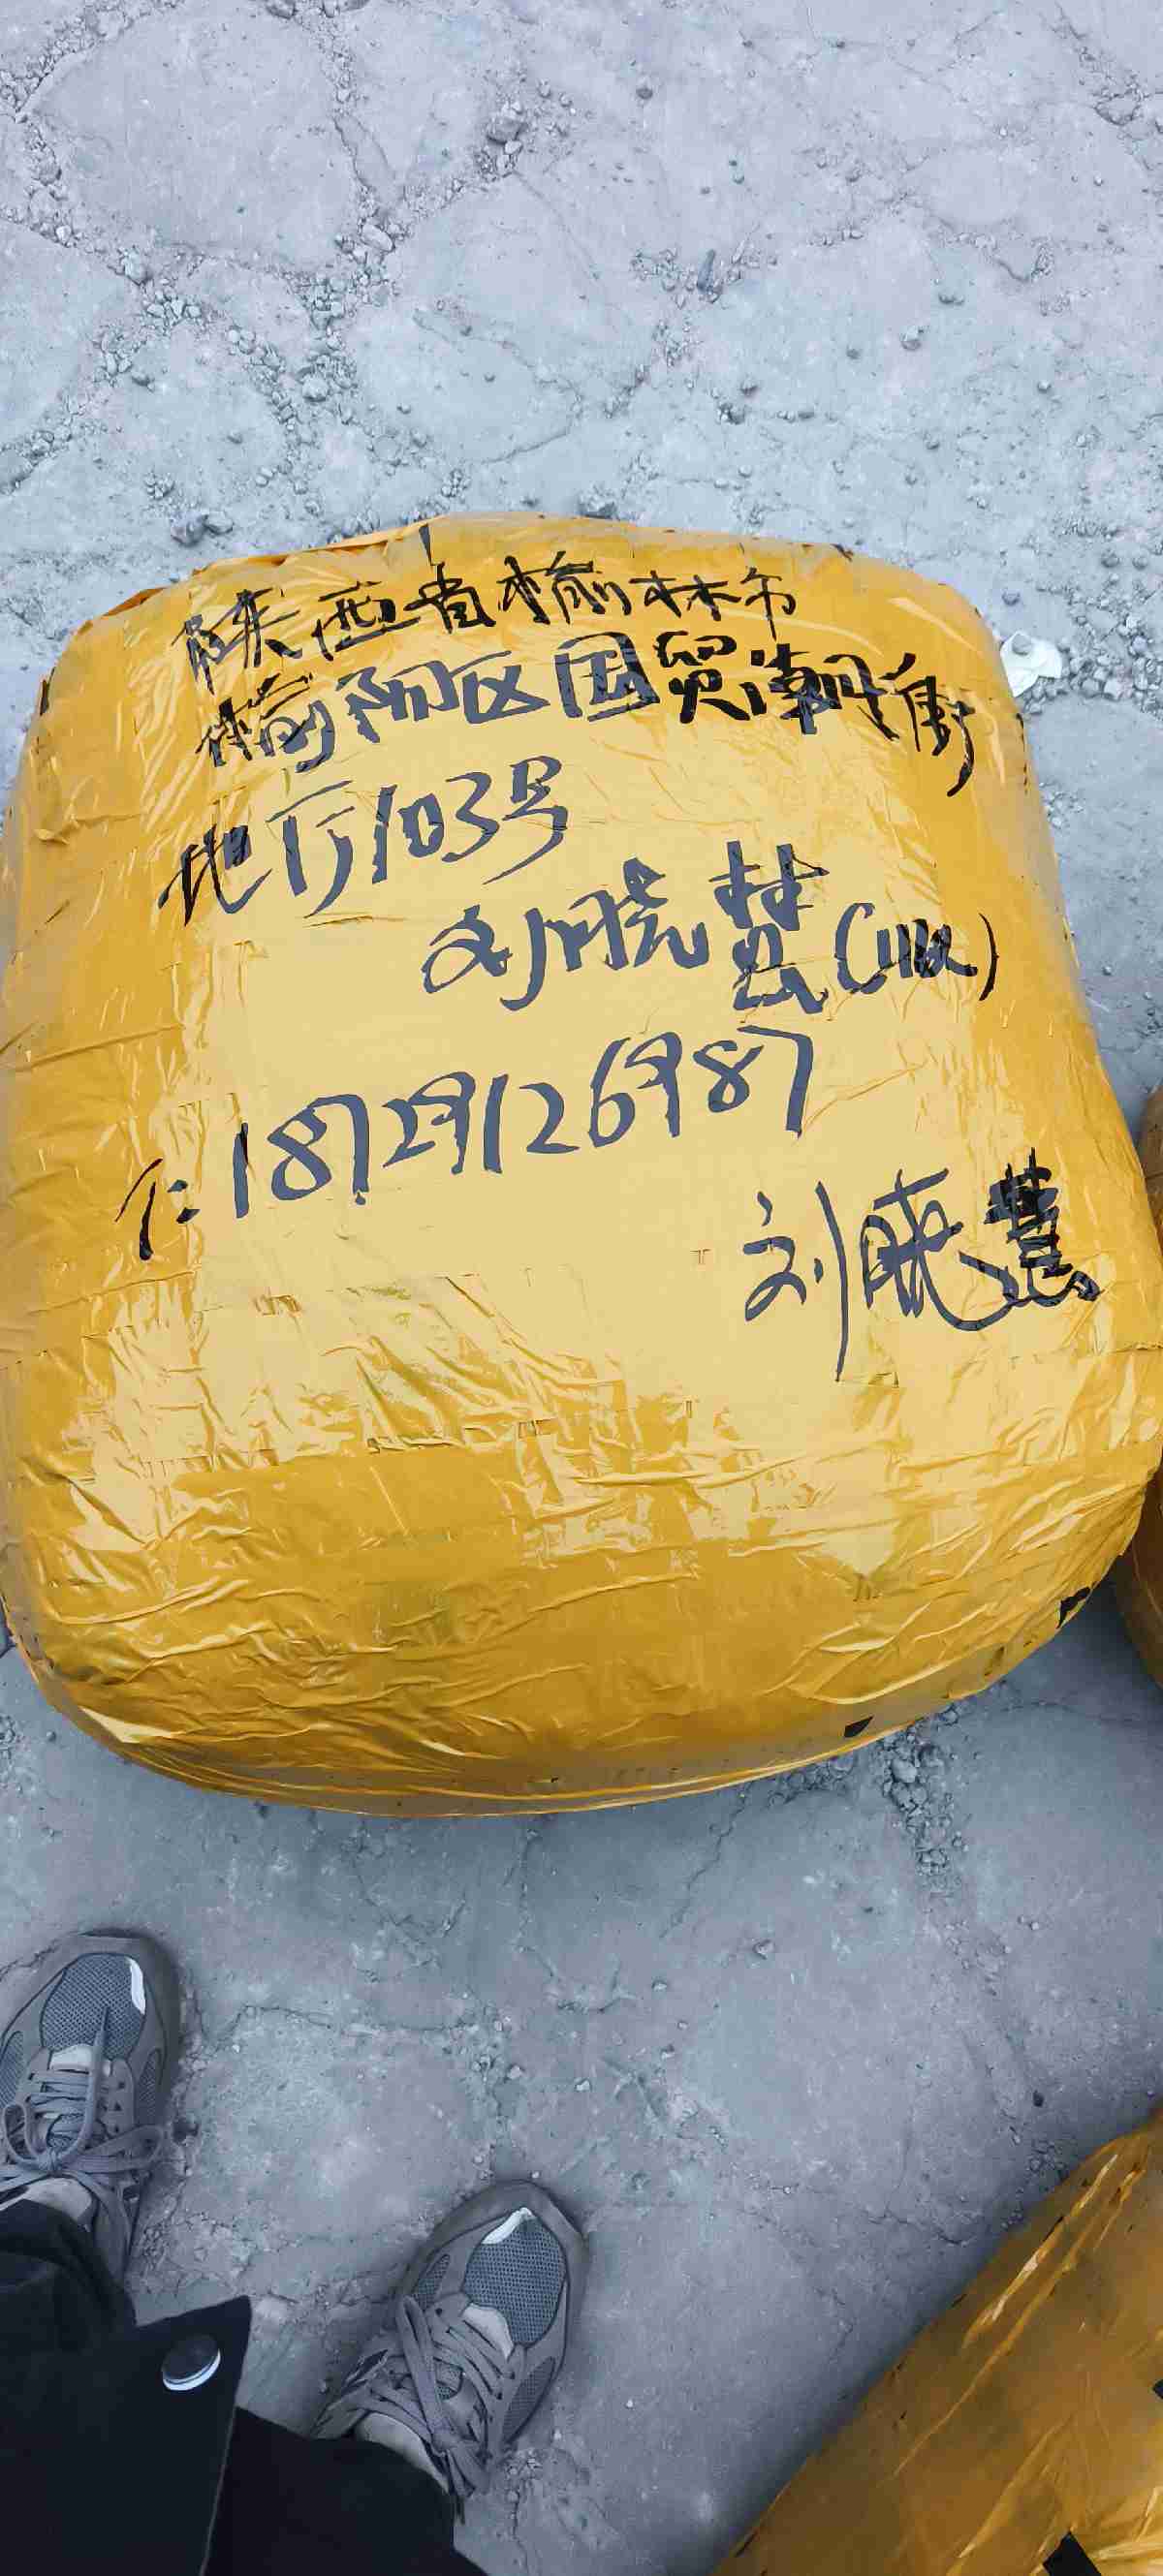 陕西省榆林市
榆阳区国贸潮牌街
地下103号
刘晓慧(收)
T:18729126987
刘晓慧